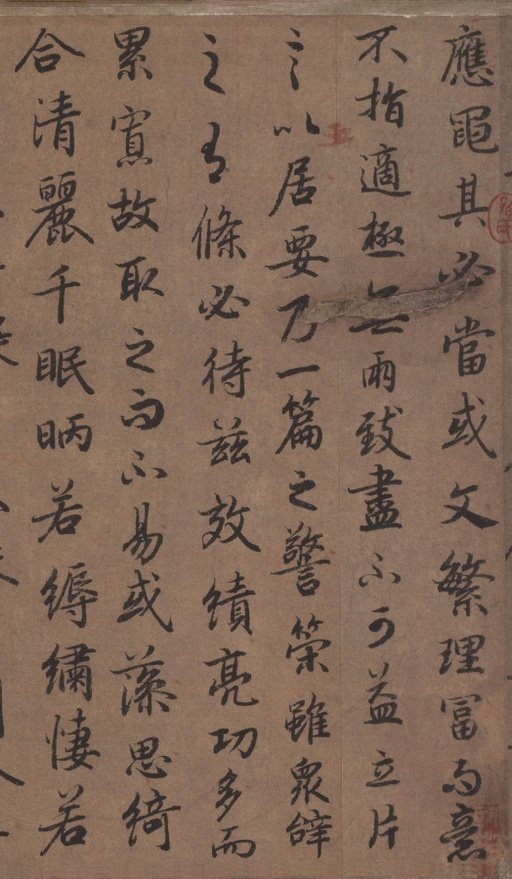 應黽其必當或文繁理富而意
不指適極無兩致盡不可益立片
言以居要乃一篇之警策雖衆辭
之有條必待茲效績亮功多而
累寡故取之而不易或藻思綺
合清麗千眠昞若縟繡悽若